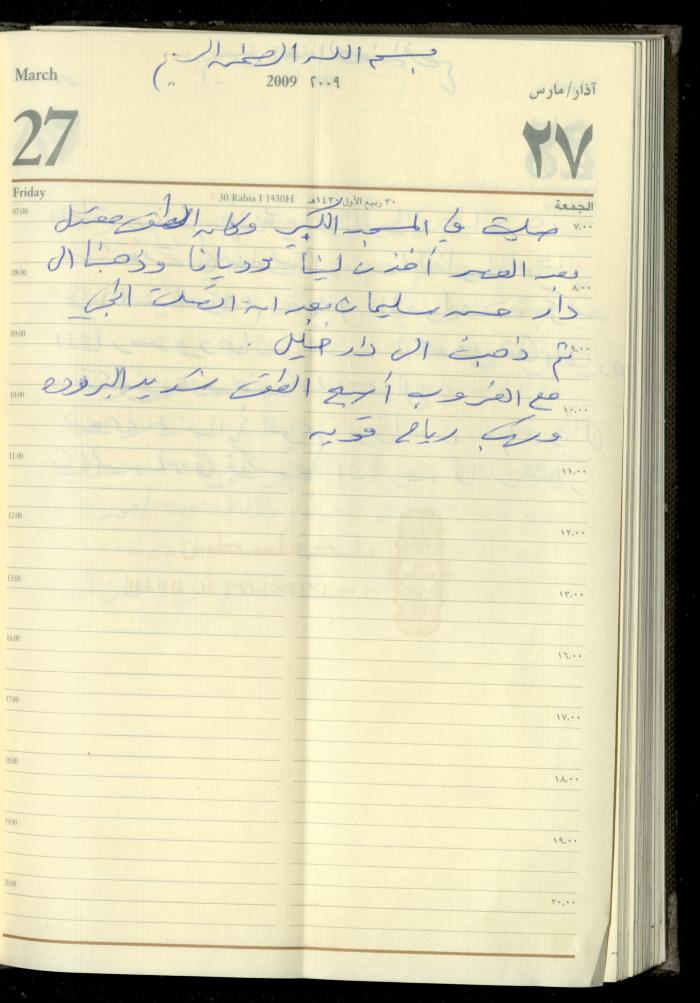 بسم الله الرحمن الرحيم
March
2009 ٢٠٠٩
آذار/مارس
27
٢٧
Friday
30 Rabia I 1430H
٣٠ ربيع الأول ١٤٣٠هـ
الجمعة
07:00 صليت في المسجد الكبير وكان الطقس معتدل ٧,٠٠
بعد العصر أخذت لينا وديانا وذهبنا الى
08:00 ٨,٠٠
دار حسن سليمان بعد ان اتصلت
09:00 ثم ذهبت الى دار خليل . ٩,٠٠
مع الغروب أصبح الطقس شديد البروده
10:00 ١٠,٠٠
وهبت رياح قويه
11:00 ١١,٠٠
12:00 ١٢,٠٠
13:00 ١٣,٠٠
BANK OF PALESTINE PLC
16:00 ١٦,٠٠
17:00 ١٧,٠٠
18:00 ١٨,٠٠
19:00 ١٩,٠٠
20:00 ٢٠,٠٠